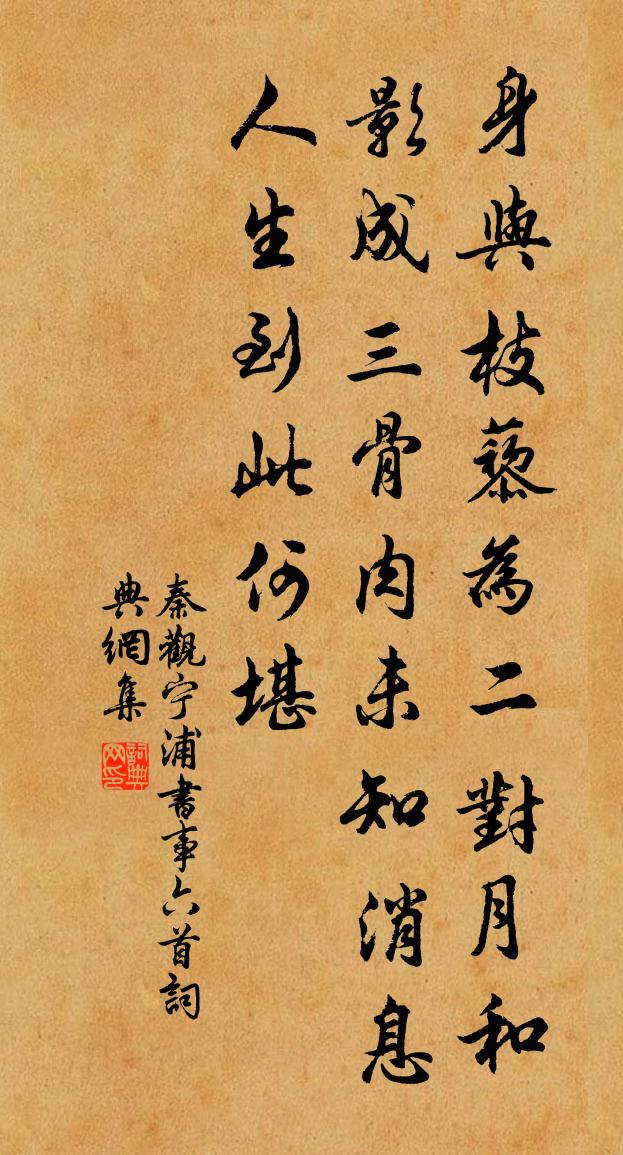 身與枝藜為二對月和
影成三骨肉未知消息
人生到此何堪
秦觀宁浦書事六首詞
典網集
詞典網印